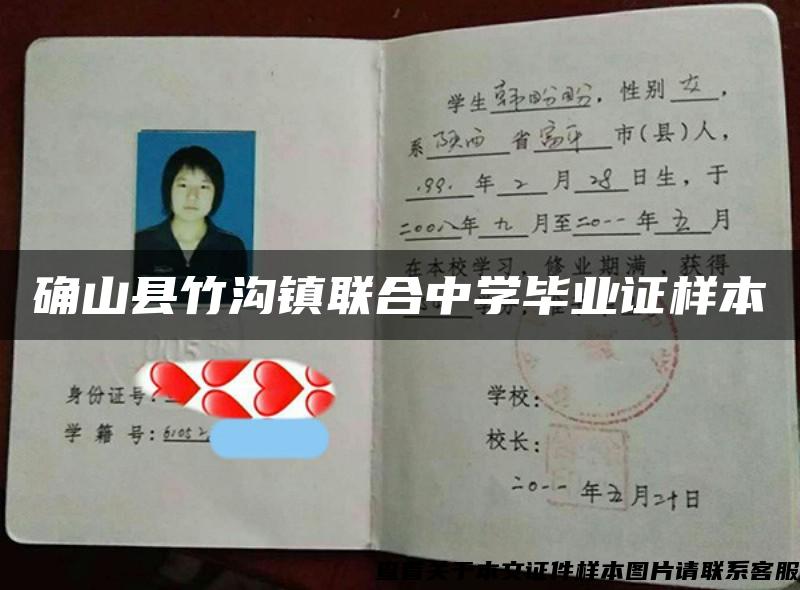 学生韩盼盼，性别女，
系陕西省富平市(县)人，
1991年2月28日生，于
二00八年九月至二0一一年五月
在本校学习，修业期满，获得
确山县竹沟镇联合中学毕业证样本
身份证号：
学籍号：61052
学校：
校长：
二0一一年五月二十日
查看关于本文证件样本图片请联系客服